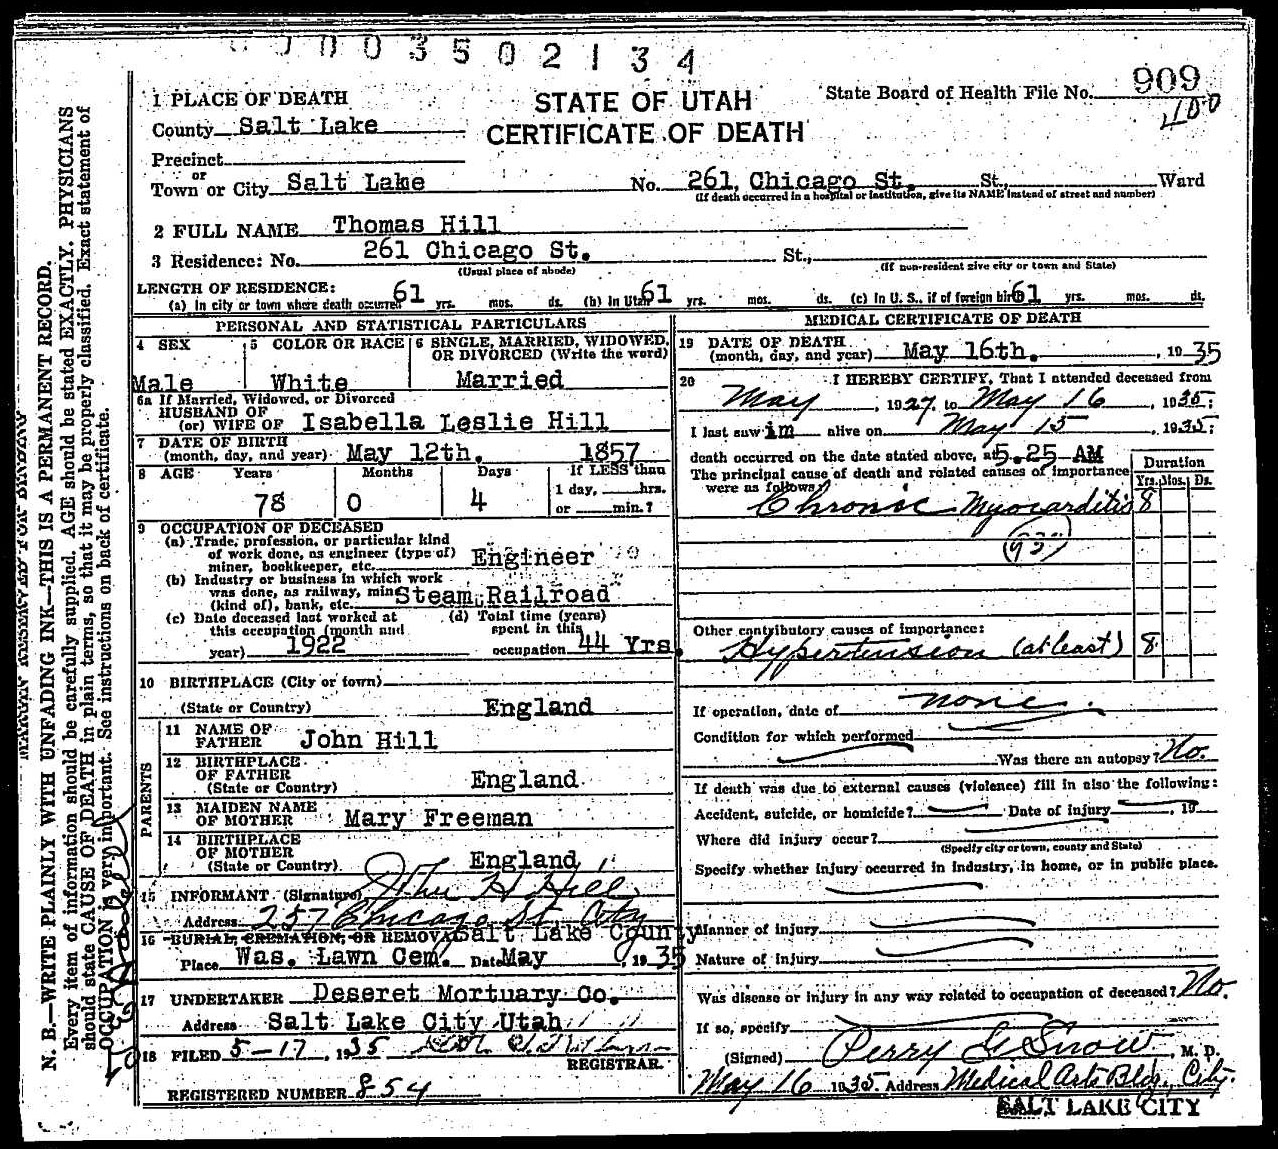 0003502134
909
400
STATE OF UTAH
CERTIFICATE OF DEATH
State Board of Health File No.
1 PLACE OF DEATH
County Salt Lake
Precinct
or
Town or City Salt Lake No. 261 Chicago St. St., Ward
(If death occurred in a hospital or institution, give its NAME instead of street and number)
2 FULL NAME Thomas Hill
3 Residence: No. 261 Chicago St. St.,
(Usual place of abode) (If non-resident give city or town and State)
LENGTH OF RESIDENCE:
(a) In city or town where death occurred 61 yrs. mos. ds. (b) In Utah 61 yrs. mos. ds. (c) In U. S., if of foreign birth 61 yrs. mos. ds.
PERSONAL AND STATISTICAL PARTICULARS
4 SEX
Male
5 COLOR OR RACE
White
6 SINGLE, MARRIED, WIDOWED, OR DIVORCED (Write the word)
Married
6a If Married, Widowed, or Divorced
HUSBAND OF
(or) WIFE OF Isabella Leslie Hill
7 DATE OF BIRTH
(month, day, and year) May 12th. 1857
8 AGE Years Months Days If LESS than
1 day, hrs.
78 0 4 or min.?
9 OCCUPATION OF DECEASED
(a) Trade, profession, or particular kind
of work done, as engineer (type of)
miner, bookkeeper, etc. Engineer
(b) Industry or business in which work
was done, as railway, mine Steam Railroad
(kind of), bank, etc.
(c) Date deceased last worked at
this occupation (month and
year) 1922
(d) Total time (years)
spent in this
occupation 44 Yrs.
10 BIRTHPLACE (City or town)
(State or Country) England
PARENTS
11 NAME OF
FATHER John Hill
12 BIRTHPLACE
OF FATHER
(State or Country) England
13 MAIDEN NAME
OF MOTHER Mary Freeman
14 BIRTHPLACE
OF MOTHER
(State or Country) England
15 INFORMANT (Signature) John H. Hill
Address 257 Chicago St City
16 BURIAL, CREMATION, OR REMOVAL Salt Lake County
Place Was. Lawn Cem. Date May, 1935
17 UNDERTAKER Deseret Mortuary Co.
Address Salt Lake City Utah
18 FILED 5-17, 1935
REGISTRAR.
REGISTERED NUMBER 854
MEDICAL CERTIFICATE OF DEATH
19 DATE OF DEATH
(month, day, and year) May 16th., 1935
20 I HEREBY CERTIFY, That I attended deceased from
May, 1927, to May 16, 1935;
I last saw im alive on May 15, 1935;
death occurred on the date stated above, at 5.25 AM
The principal cause of death and related causes of importance
were as follows:
Duration
Yrs. Mos. Ds.
Chronic Myocarditis 8
(93)
Other contributory causes of importance:
Hypertension (at least) 8
If operation, date of none.
Condition for which performed
Was there an autopsy? No.
If death was due to external causes (violence) fill in also the following:
Accident, suicide, or homicide? Date of injury, 19
Where did injury occur?
(Specify city or town, county and State)
Specify whether injury occurred in industry, in home, or in public place.
Manner of injury
Nature of injury
Was disease or injury in any way related to occupation of deceased? No.
If so, specify
(Signed) Perry G. Snow, M. D.
May 16 1935 Address Medical Arts Bldg., City.
SALT LAKE CITY
MARGIN RESERVED FOR BINDING
N. B.—WRITE PLAINLY WITH UNFADING INK—THIS IS A PERMANENT RECORD.
Every item of information should be carefully supplied. AGE should be stated EXACTLY. PHYSICIANS
should state CAUSE OF DEATH in plain terms, so that it may be properly classified. Exact statement of
OCCUPATION is very important. See instructions on back of certificate.